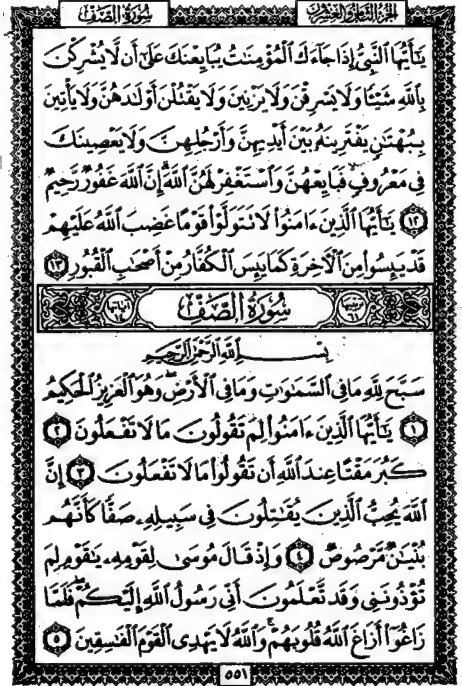 سُورَةُ الصَّفِّ
الجزء الثامن والعشرون
يَـٰٓأَيُّهَا ٱلنَّبِيُّ إِذَا جَآءَكَ ٱلْمُؤْمِنَـٰتُ يُبَايِعْنَكَ عَلَىٰٓ أَن لَّا يُشْرِكْنَ
بِٱللَّهِ شَيْـًٔا وَلَا يَسْرِقْنَ وَلَا يَزْنِينَ وَلَا يَقْتُلْنَ أَوْلَـٰدَهُنَّ وَلَا يَأْتِينَ
بِبُهْتَـٰنٍ يَفْتَرِينَهُۥ بَيْنَ أَيْدِيهِنَّ وَأَرْجُلِهِنَّ وَلَا يَعْصِينَكَ
فِي مَعْرُوفٍ فَبَايِعْهُنَّ وَٱسْتَغْفِرْ لَهُنَّ ٱللَّهَ إِنَّ ٱللَّهَ غَفُورٌ رَّحِيمٌ
١٢ يَـٰٓأَيُّهَا ٱلَّذِينَ ءَامَنُوا۟ لَا تَتَوَلَّوْا۟ قَوْمًا غَضِبَ ٱللَّهُ عَلَيْهِمْ
قَدْ يَئِسُوا۟ مِنَ ٱلْـَٔاخِرَةِ كَمَا يَئِسَ ٱلْكُفَّارُ مِنْ أَصْحَـٰبِ ٱلْقُبُورِ ١٣
ترتيبها ٦١ سُورَةُ الصَّفِّ آياتها ١٤
بِسْمِ ٱللَّهِ ٱلرَّحْمَـٰنِ ٱلرَّحِيمِ
سَبَّحَ لِلَّهِ مَا فِي ٱلسَّمَـٰوَٰتِ وَمَا فِي ٱلْأَرْضِ وَهُوَ ٱلْعَزِيزُ ٱلْحَكِيمُ
١ يَـٰٓأَيُّهَا ٱلَّذِينَ ءَامَنُوا۟ لِمَ تَقُولُونَ مَا لَا تَفْعَلُونَ ٢
كَبُرَ مَقْتًا عِندَ ٱللَّهِ أَن تَقُولُوا۟ مَا لَا تَفْعَلُونَ ٣ إِنَّ
ٱللَّهَ يُحِبُّ ٱلَّذِينَ يُقَـٰتِلُونَ فِي سَبِيلِهِۦ صَفًّا كَأَنَّهُم
بُنْيَـٰنٌ مَّرْصُوصٌ ٤ وَإِذْ قَالَ مُوسَىٰ لِقَوْمِهِۦ يَـٰقَوْمِ لِمَ
تُؤْذُونَنِي وَقَد تَّعْلَمُونَ أَنِّي رَسُولُ ٱللَّهِ إِلَيْكُمْ فَلَمَّا
زَاغُوٓا۟ أَزَاغَ ٱللَّهُ قُلُوبَهُمْ وَٱللَّهُ لَا يَهْدِي ٱلْقَوْمَ ٱلْفَـٰسِقِينَ ٥
٥٥١